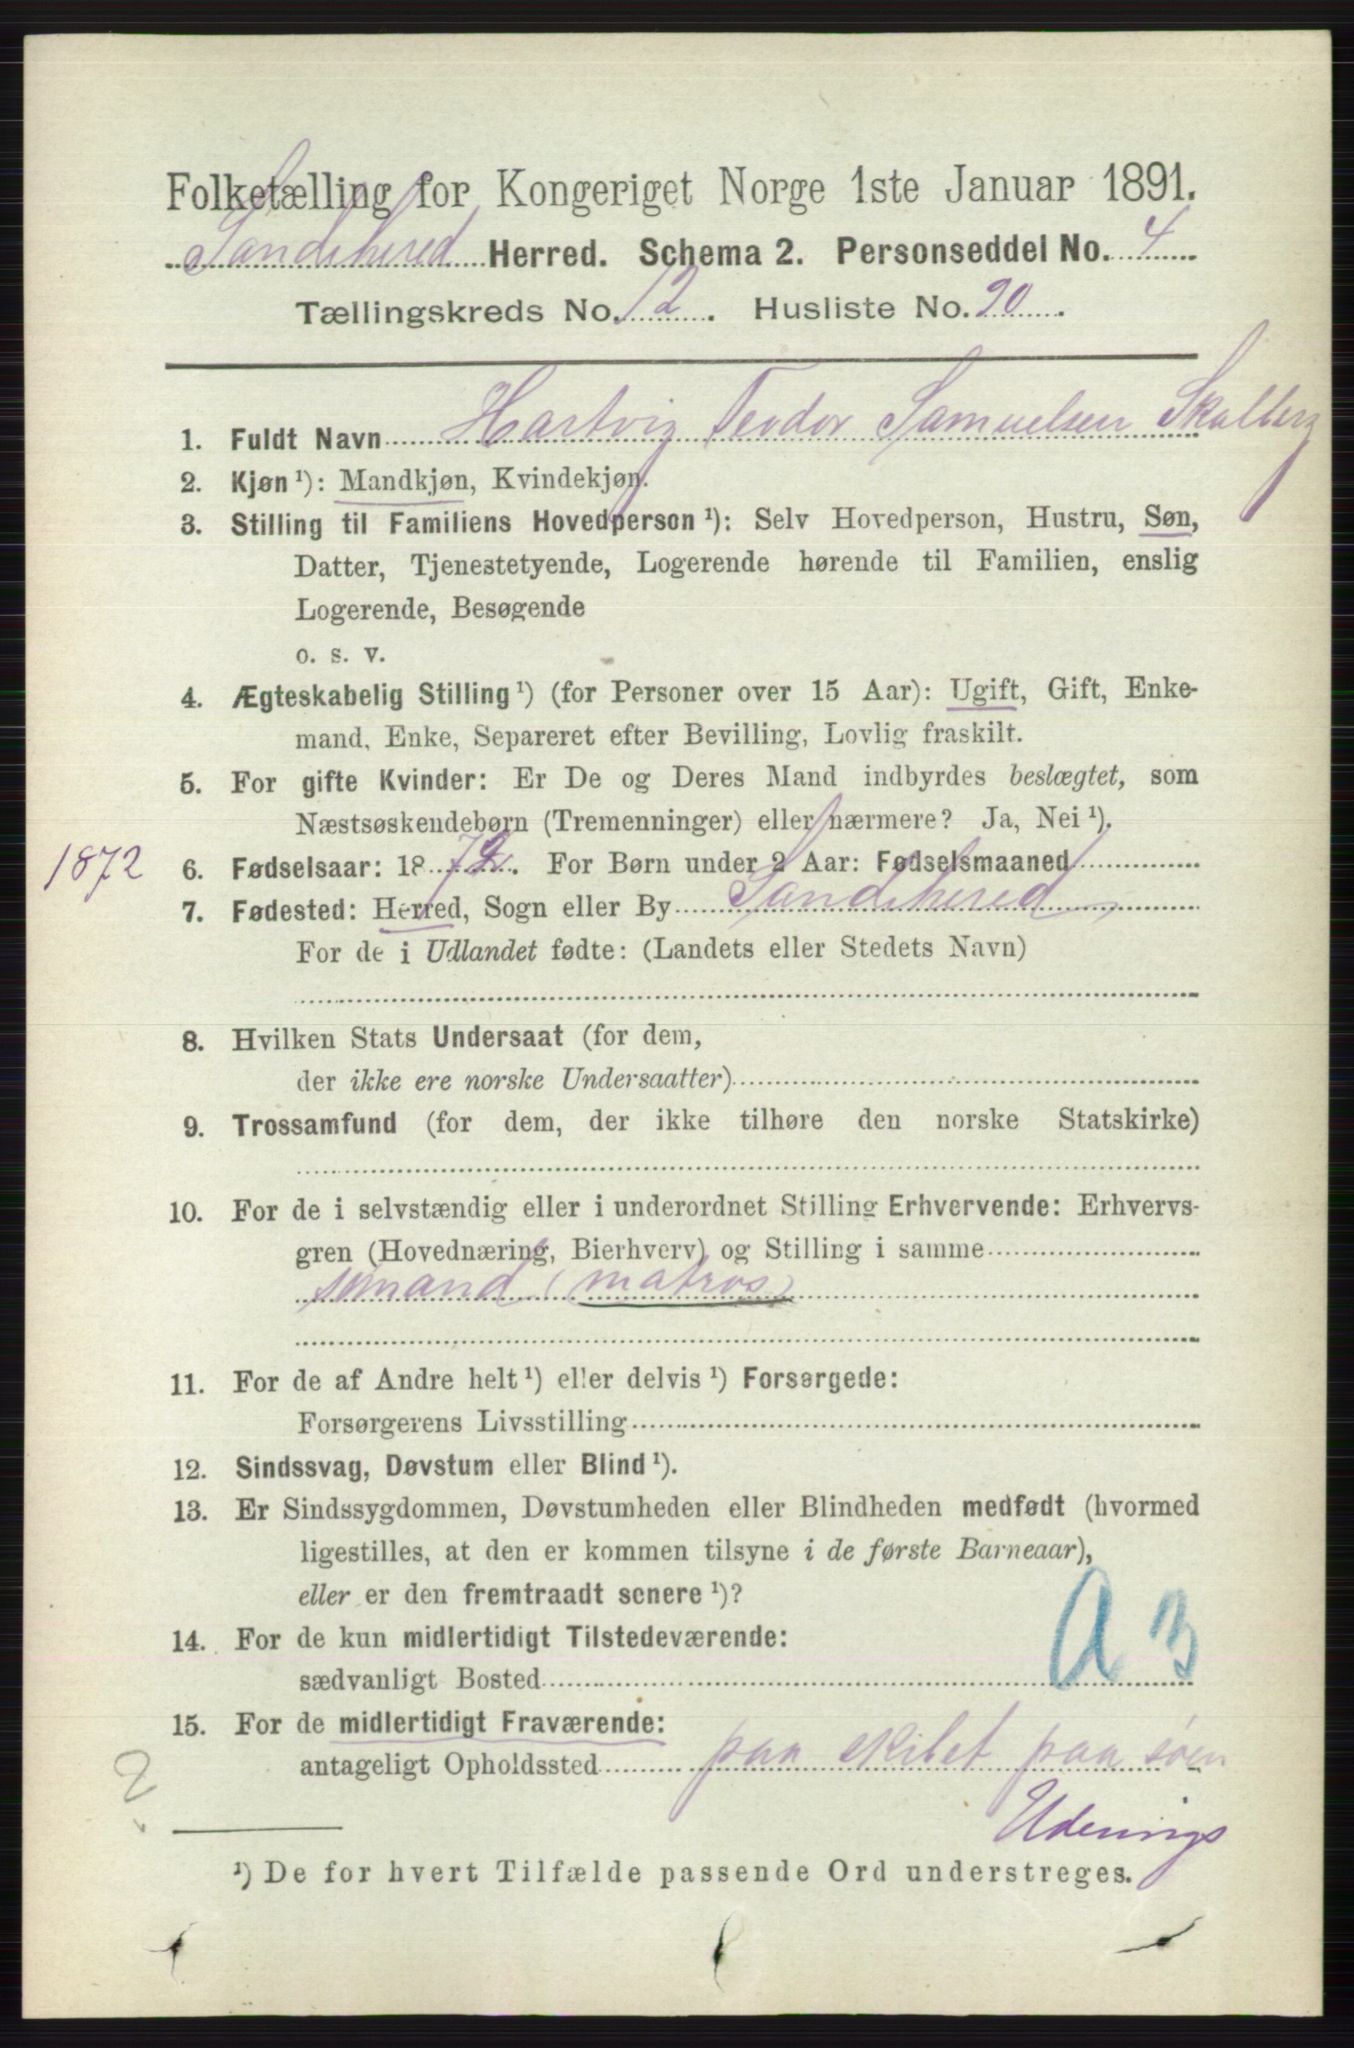 Folketælling for Kongeriget Norge 1ste Januar 1891.
Sandehered Herred. Schema 2. Personseddel No. 4
Tællingskreds No. 12. Husliste No. 20.
1. Fuldt Navn Hartvig Teodor Samuelsen Skalberg
2. Kjøn ¹): Mandkjøn, Kvindekjøn.
3. Stilling til Familiens Hovedperson ¹): Selv Hovedperson, Hustru, Søn,
Datter, Tjenestetyende, Logerende hørende til Familien, enslig
Logerende, Besøgende
o. s. v.
4. Ægteskabelig Stilling ¹) (for Personer over 15 Aar): Ugift, Gift, Enke-
mand, Enke, Separeret efter Bevilling, Lovlig fraskilt.
5. For gifte Kvinder: Er De og Deres Mand indbyrdes beslægtet, som
Næstsøskendebørn (Tremenninger) eller nærmere? Ja, Nei ¹).
1872 6. Fødselsaar: 1872. For Børn under 2 Aar: Fødselsmaaned
7. Fødested: Herred, Sogn eller By Sandehered
For de i Udlandet fødte: (Landets eller Stedets Navn)
8. Hvilken Stats Undersaat (for dem,
der ikke ere norske Undersaatter)
9. Trossamfund (for dem, der ikke tilhøre den norske Statskirke)
10. For de i selvstændig eller i underordnet Stilling Erhvervende: Erhvervs-
gren (Hovednæring, Bierhverv) og Stilling i samme
sømand (matros)
11. For de af Andre helt ¹) eller delvis ¹) Forsørgede:
Forsørgerens Livsstilling
12. Sindssvag, Døvstum eller Blind ¹).
13. Er Sindssygdommen, Døvstumheden eller Blindheden medfødt (hvormed
ligestilles, at den er kommen tilsyne i de første Barneaar),
eller er den fremtraadt senere ¹)?
A 3
14. For de kun midlertidigt Tilstedeværende:
sædvanligt Bosted
15. For de midlertidigt Fraværende:
antageligt Opholdssted paa skibet paa søen
2
Udenrigs
¹) De for hvert Tilfælde passende Ord understreges.